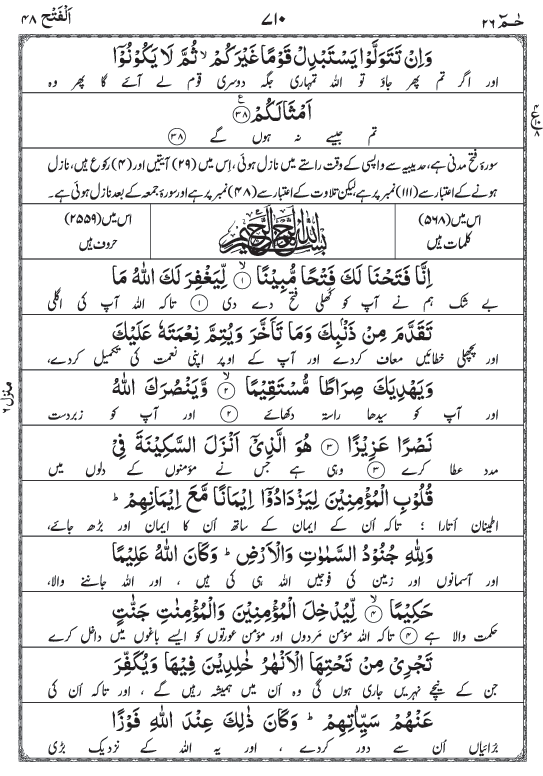 حٰمٓ ۲۶ ۷۱۰ اَلْفَتْح ۴۸
وَاِنْ تَتَوَلَّوْا يَسْتَبْدِلْ قَوْمًا غَيْرَكُمْ ۙ ثُمَّ لَا يَكُوْنُوْٓا
اور اگر تم پھر جاؤ تو اللہ تمہاری جگہ دوسری قوم لے آئے گا پھر وہ
اَمْثَالَكُمْ ۝۳۸
تم جیسے نہ ہوں گے ۳۸
سورۂ فتح مدنی ہے، حدیبیہ سے واپسی کے وقت راستے میں نازل ہوئی، اس میں (۲۹) آیتیں اور (۴) رکوع ہیں، نازل
ہونے کے اعتبار سے (۱۱۱) نمبر پر ہے لیکن تلاوت کے اعتبار سے (۴۸) نمبر پر ہے اور سورۂ جمعہ کے بعد نازل ہوئی ہے۔
اس میں (۵۶۸) کلمات ہیں
بِسْمِ اللهِ الرَّحْمٰنِ الرَّحِيْمِ
اس میں (۲۵۵۹) حروف ہیں
اِنَّا فَتَحْنَا لَكَ فَتْحًا مُّبِيْنًا ۝۱ۙ لِّيَغْفِرَ لَكَ اللّٰهُ مَا
بے شک ہم نے آپ کو کھلی فتح دے دی ۱ تاکہ اللہ آپ کی اگلی
تَقَدَّمَ مِنْ ذَنْۢبِكَ وَمَا تَاَخَّرَ وَيُتِمَّ نِعْمَتَهٗ عَلَيْكَ
اور پچھلی خطائیں معاف کردے اور آپ کے اوپر اپنی نعمت کی تکمیل کردے،
وَيَهْدِيَكَ صِرَاطًا مُّسْتَقِيْمًا ۝۲ۙ وَّيَنْصُرَكَ اللّٰهُ
اور آپ کو سیدھا راستہ دکھائے ۲ اور آپ کو زبردست
نَصْرًا عَزِيْزًا ۝۳ هُوَ الَّذِيْٓ اَنْزَلَ السَّكِيْنَةَ فِيْ
مدد عطا کرے ۳ وہی ہے جس نے مؤمنوں کے دلوں میں
قُلُوْبِ الْمُؤْمِنِيْنَ لِيَزْدَادُوْٓا اِيْمَانًا مَّعَ اِيْمَانِهِمْ ؕ
اطمینان اُتارا ؛ تاکہ اُن کے ایمان کے ساتھ اُن کا ایمان اور بڑھ جائے،
وَلِلّٰهِ جُنُوْدُ السَّمٰوٰتِ وَالْاَرْضِ ؕ وَكَانَ اللّٰهُ عَلِيْمًا
اور آسمانوں اور زمین کی فوجیں اللہ ہی کی ہیں ، اور اللہ جاننے والا،
حَكِيْمًا ۝۴ۙ لِّيُدْخِلَ الْمُؤْمِنِيْنَ وَالْمُؤْمِنٰتِ جَنّٰتٍ
حکمت والا ہے ۴ تاکہ اللہ مؤمن مَردوں اور مؤمن عورتوں کو ایسے باغوں میں داخل کرے
تَجْرِيْ مِنْ تَحْتِهَا الْاَنْهٰرُ خٰلِدِيْنَ فِيْهَا وَيُكَفِّرَ
جن کے نیچے نہریں جاری ہوں گی وہ اُن میں ہمیشہ رہیں گے ، اور تاکہ اُن کی
عَنْهُمْ سَيِّاٰتِهِمْ ؕ وَكَانَ ذٰلِكَ عِنْدَ اللّٰهِ فَوْزًا
برائیاں اُن سے دور کردے ، اور یہ اللہ کے نزدیک بڑی
منزل ۶